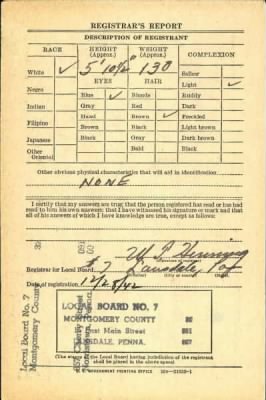 REGISTRAR'S REPORT
DESCRIPTION OF REGISTRANT
RACE HEIGHT (Approx.) WEIGHT (Approx.) COMPLEXION
White ✓ 5' 10½" 130 Sallow
EYES HAIR Light ✓
Negro Blue ✓ Blonde Ruddy
Indian Gray Red Dark
Hazel Brown ✓ Freckled
Filipino Brown Black Light brown
Japanese Black Gray Dark brown
Other Oriental Bald Black
Other obvious physical characteristics that will aid in identification
NONE
I certify that my answers are true; that the person registered has read or has had
read to him his own answers; that I have witnessed his signature or mark and that
all of his answers of which I have knowledge are true, except as follows:
Registrar for Local Board #7 Lansdale, Pa
Date of registration 12/28/42
LOCAL BOARD NO. 7
MONTGOMERY COUNTY
East Main Street
LANSDALE, PENNA.
Local Board No. 7
Montgomery County
(The stamp of the Local Board having jurisdiction of the registrant
shall be placed in the above space.)
GOVERNMENT PRINTING OFFICE